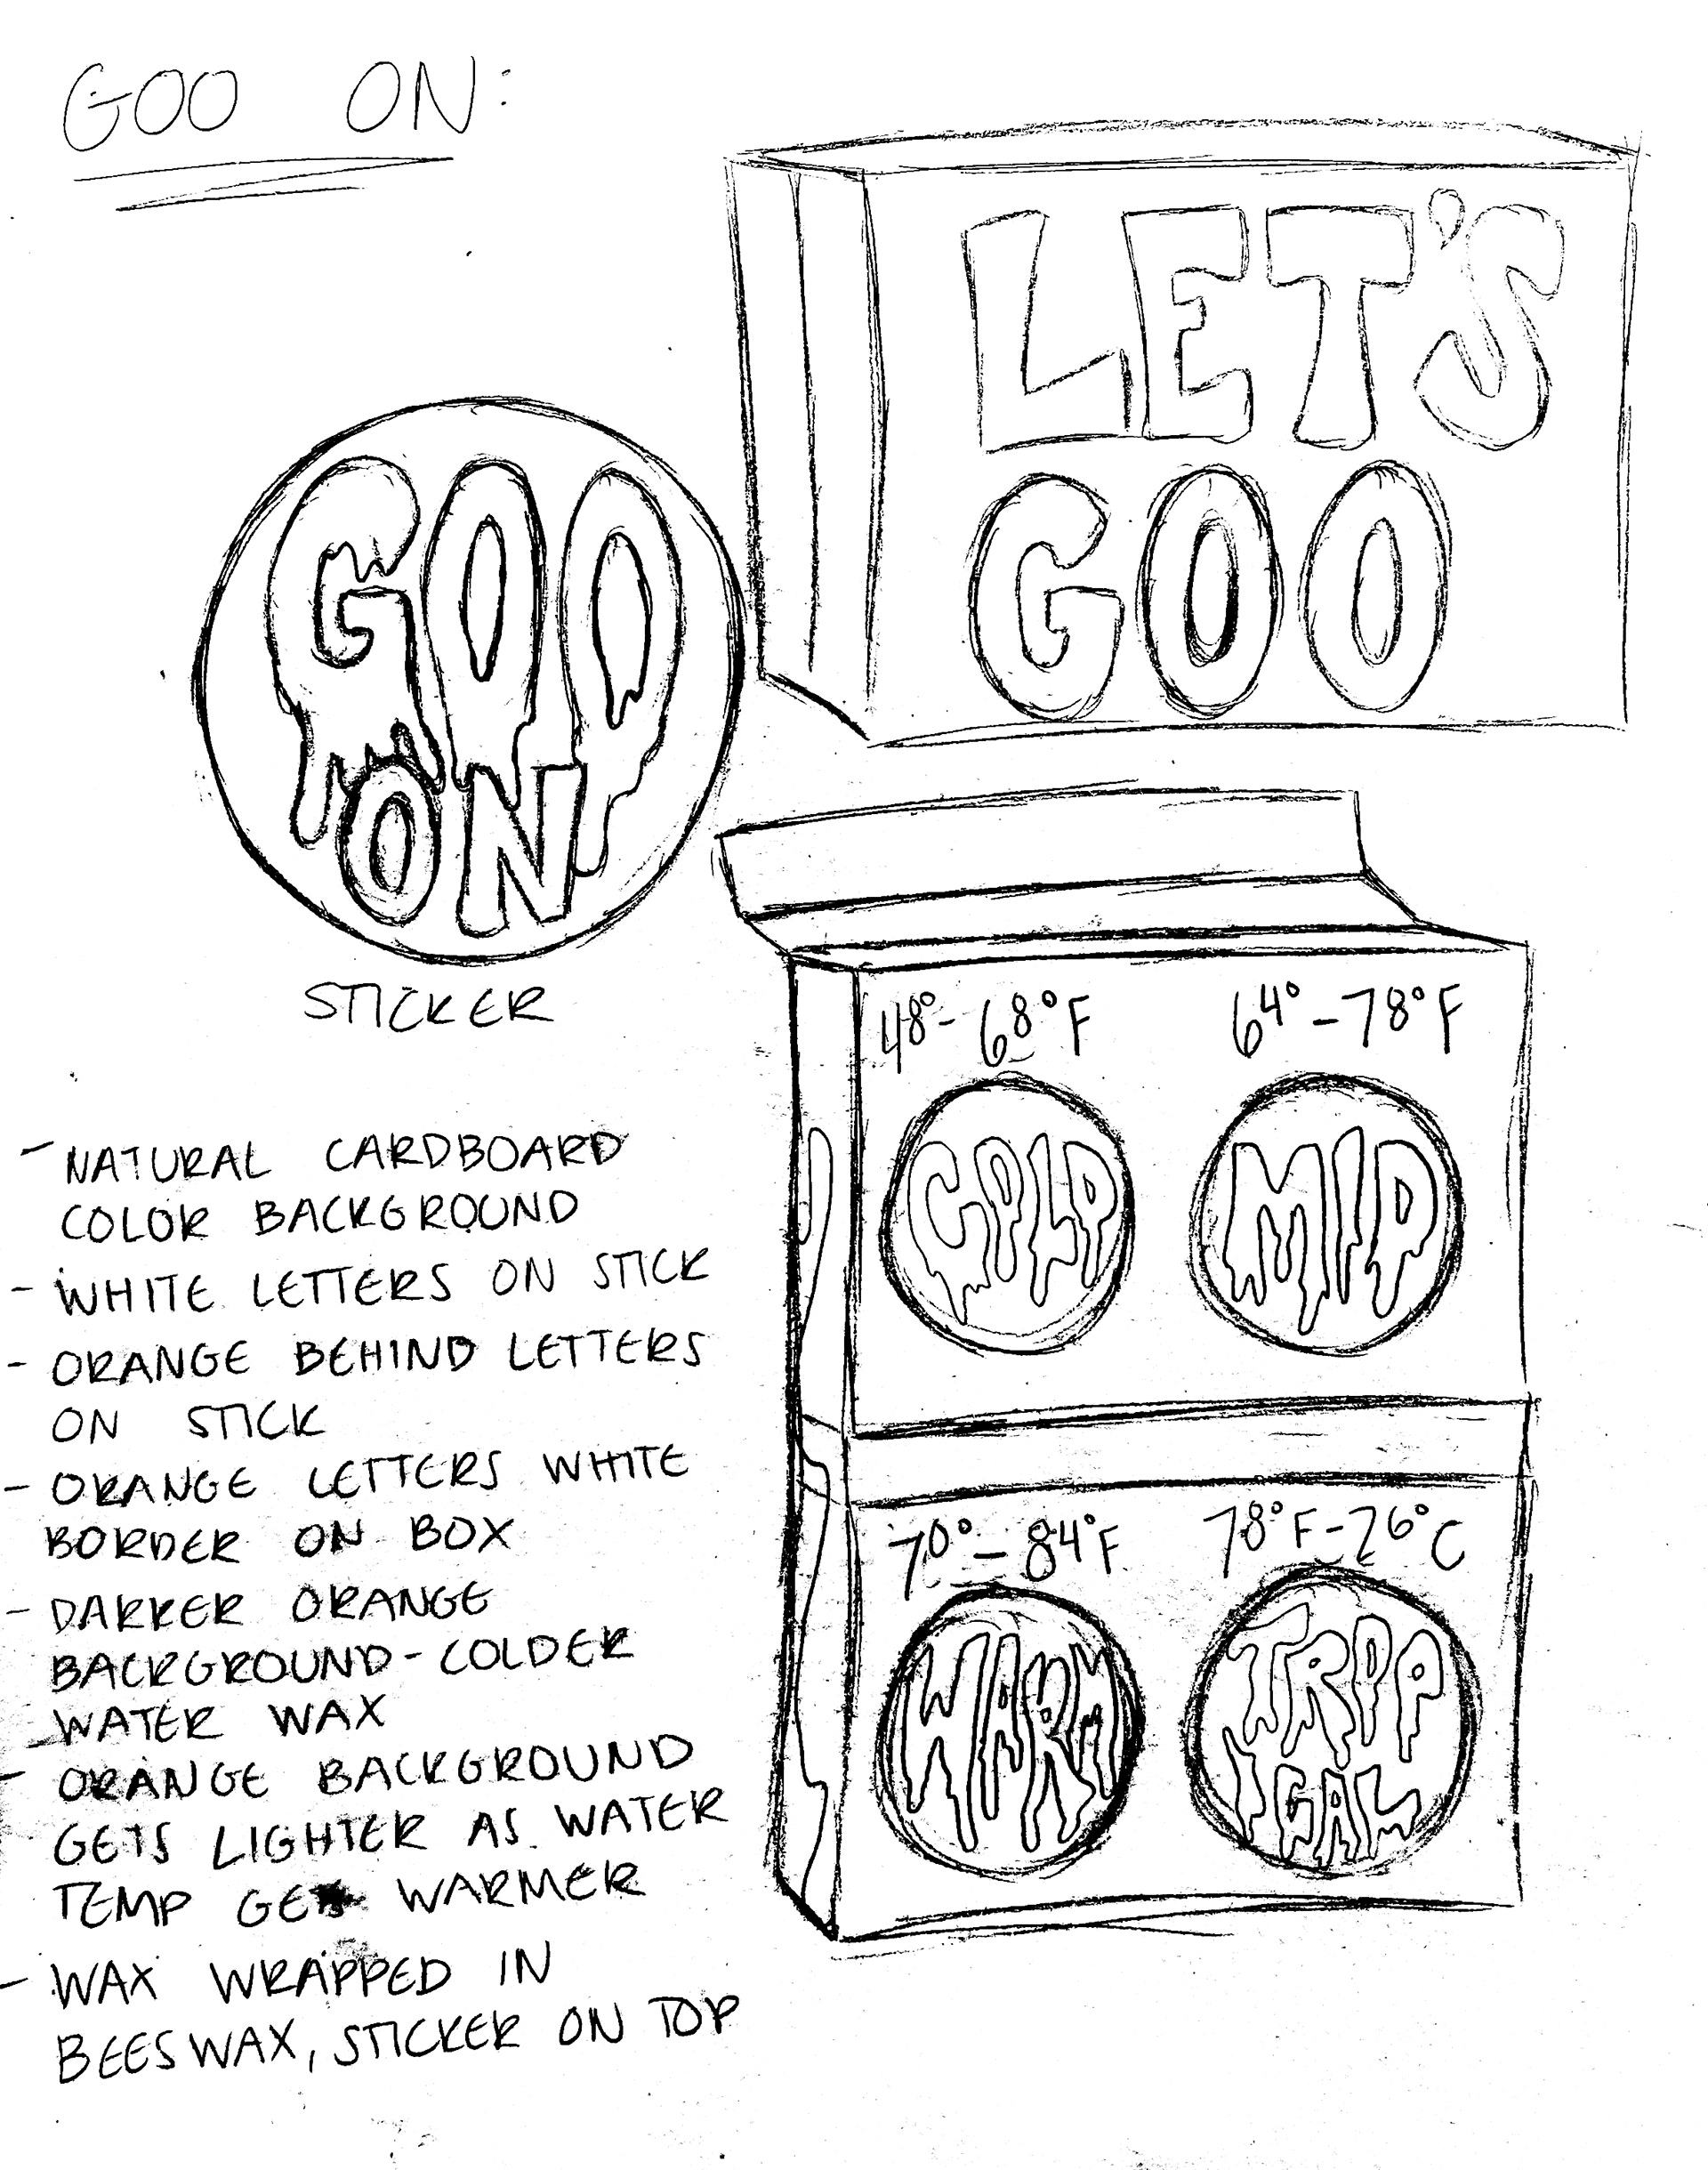 GOO ON:
LET'S
GOO
GOO
ON
STICKER
48°- 68°F
64° - 78°F
COLD
MID
70° - 84°F
78°F - 26°C
WARM
TROP
ICAL
- NATURAL CARDBOARD
COLOR BACKGROUND
- WHITE LETTERS ON STICK
- ORANGE BEHIND LETTERS
ON STICK
- ORANGE LETTERS WHITE
BORDER ON BOX
- DARKER ORANGE
BACKGROUND - COLDER
WATER WAX
- ORANGE BACKGROUND
GETS LIGHTER AS WATER
TEMP GETS WARMER
- WAX WRAPPED IN
BEESWAX, STICKER ON TOP